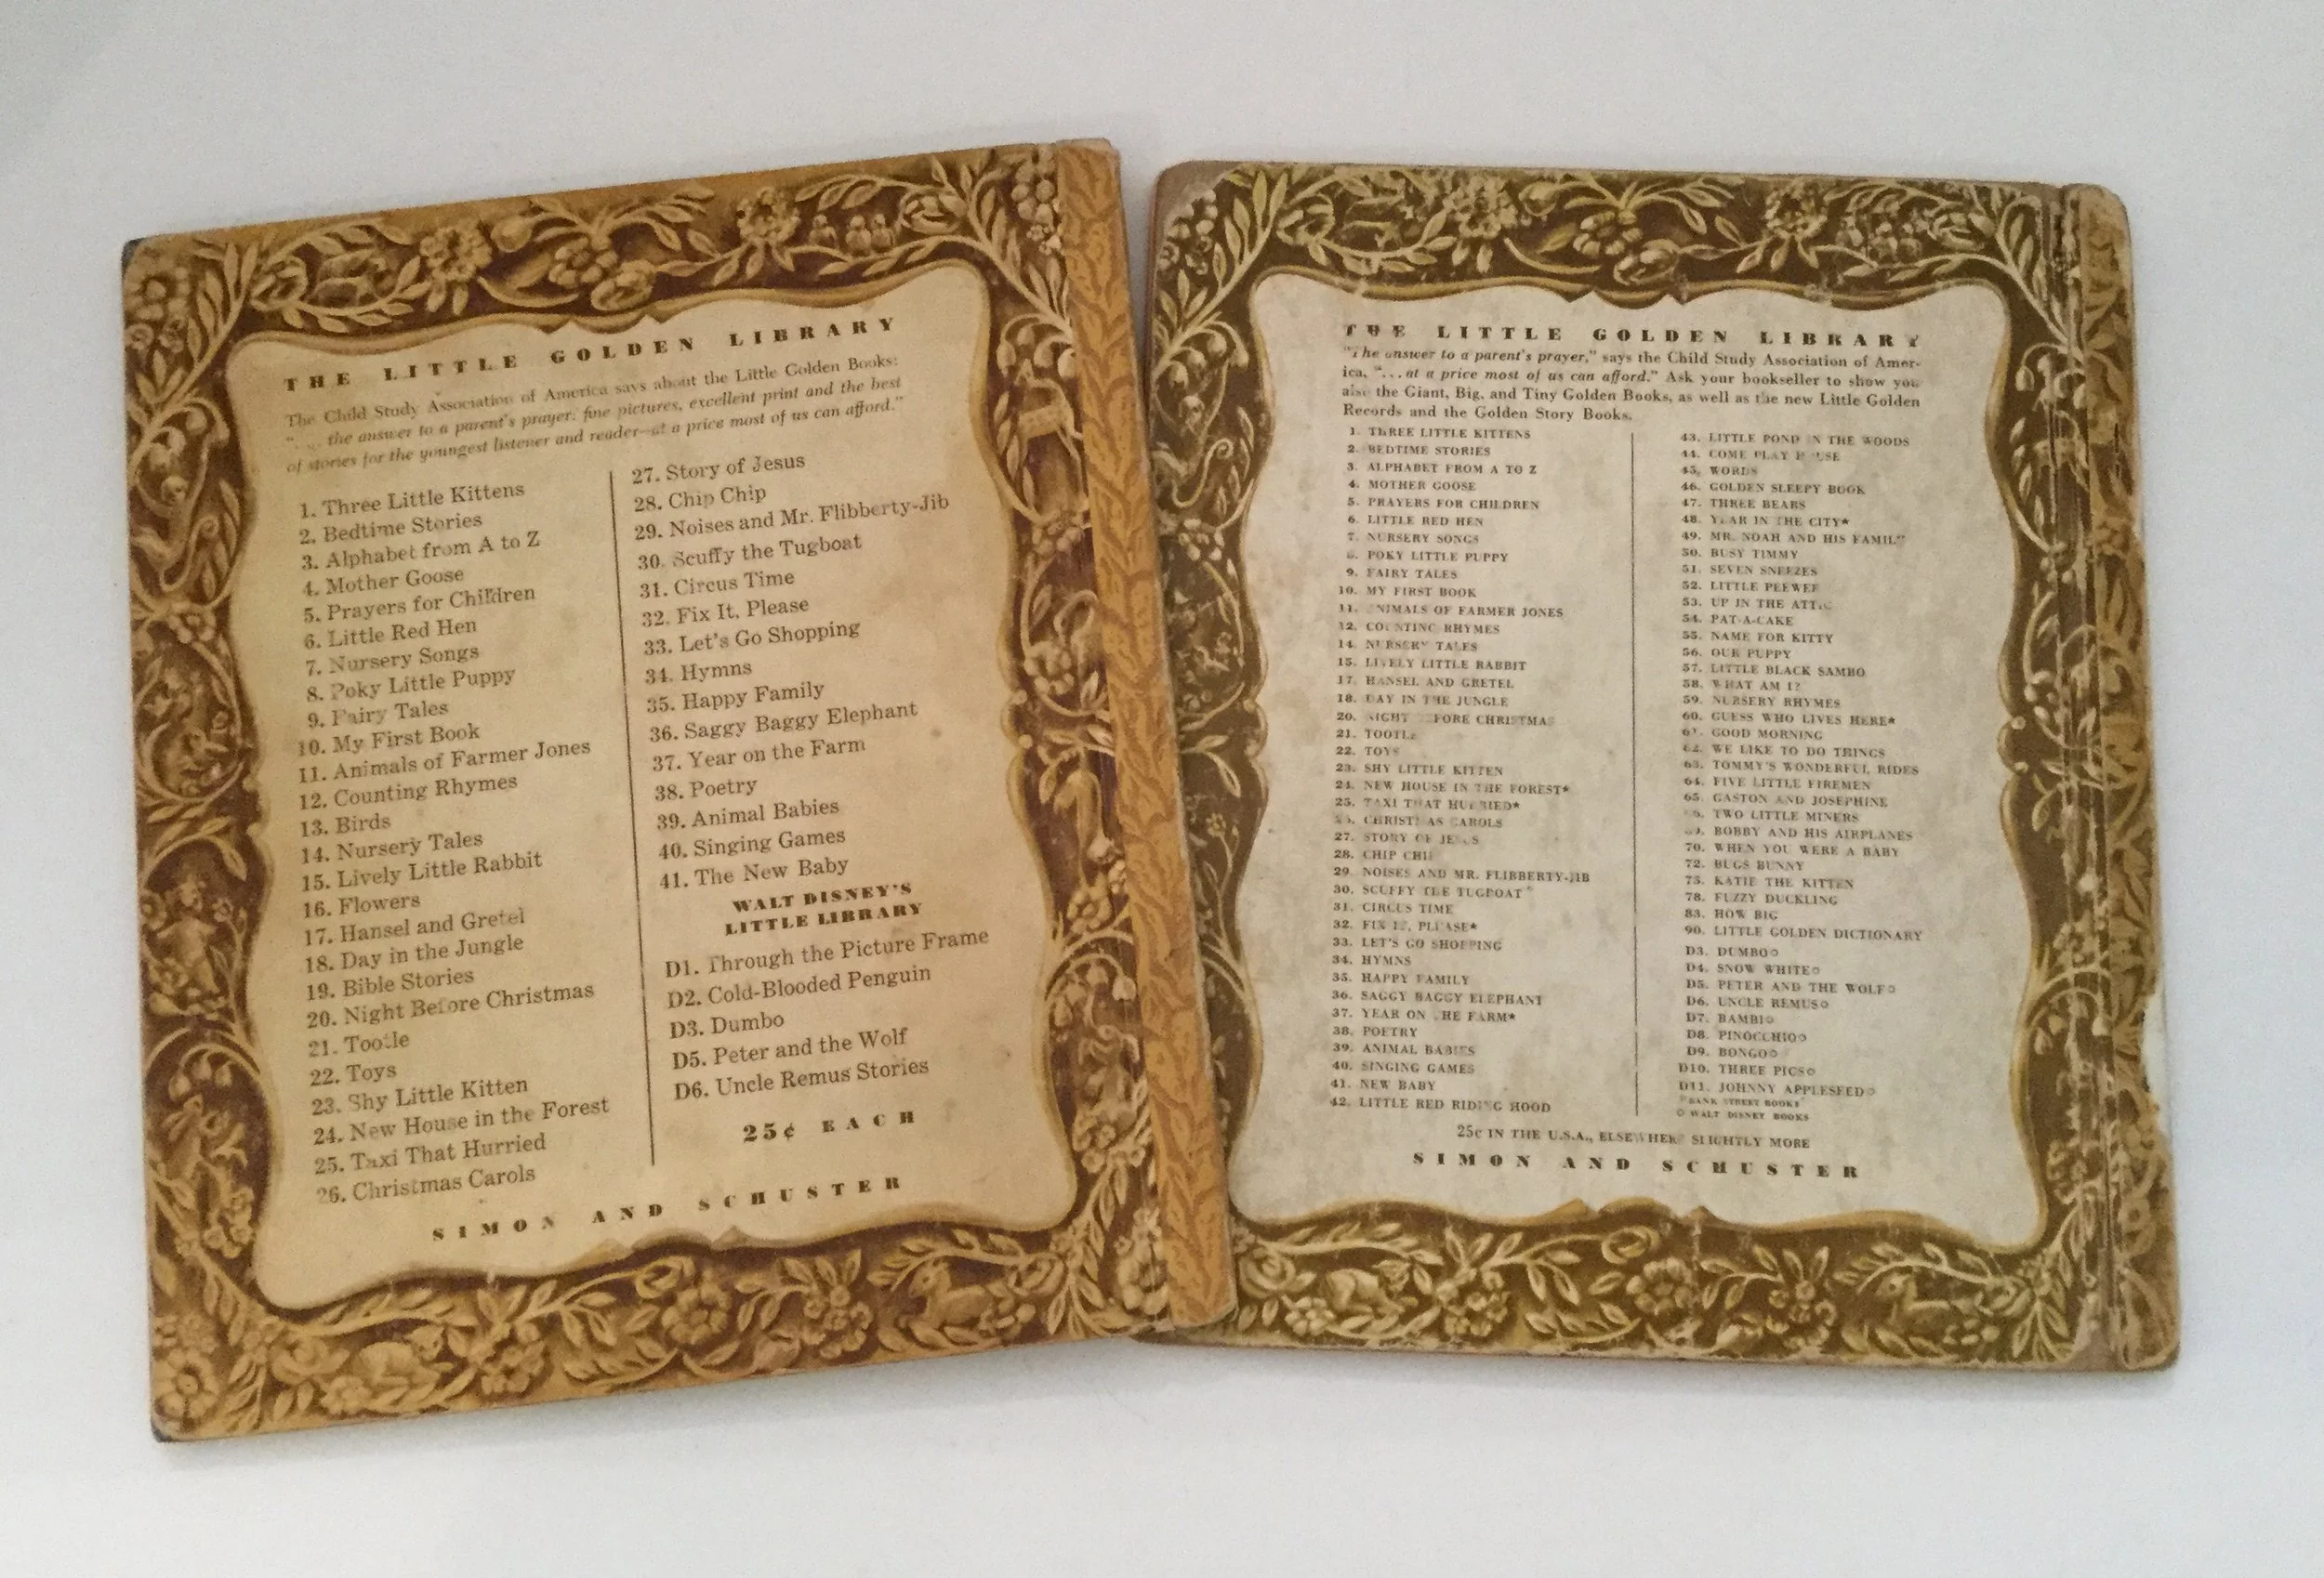 THE LITTLE GOLDEN LIBRARY
The Child Study Association of America says about the Little Golden Books:
"... the answer to a parent's prayer: fine pictures, excellent print and the best
of stories for the youngest listener and reader—at a price most of us can afford."
1. Three Little Kittens
2. Bedtime Stories
3. Alphabet from A to Z
4. Mother Goose
5. Prayers for Children
6. Little Red Hen
7. Nursery Songs
8. Poky Little Puppy
9. Fairy Tales
10. My First Book
11. Animals of Farmer Jones
12. Counting Rhymes
13. Birds
14. Nursery Tales
15. Lively Little Rabbit
16. Flowers
17. Hansel and Gretel
18. Day in the Jungle
19. Bible Stories
20. Night Before Christmas
21. Tootle
22. Toys
23. Shy Little Kitten
24. New House in the Forest
25. Taxi That Hurried
26. Christmas Carols
27. Story of Jesus
28. Chip Chip
29. Noises and Mr. Flibberty-Jib
30. Scuffy the Tugboat
31. Circus Time
32. Fix It, Please
33. Let's Go Shopping
34. Hymns
35. Happy Family
36. Saggy Baggy Elephant
37. Year on the Farm
38. Poetry
39. Animal Babies
40. Singing Games
41. The New Baby
WALT DISNEY'S
LITTLE LIBRARY
D1. Through the Picture Frame
D2. Cold-Blooded Penguin
D3. Dumbo
D5. Peter and the Wolf
D6. Uncle Remus Stories
25¢ EACH
SIMON AND SCHUSTER
THE LITTLE GOLDEN LIBRARY
"The answer to a parent's prayer," says the Child Study Association of Amer-
ica, "...at a price most of us can afford." Ask your bookseller to show you
also the Giant, Big, and Tiny Golden Books, as well as the new Little Golden
Records and the Golden Story Books.
1. THREE LITTLE KITTENS
2. BEDTIME STORIES
3. ALPHABET FROM A TO Z
4. MOTHER GOOSE
5. PRAYERS FOR CHILDREN
6. LITTLE RED HEN
7. NURSERY SONGS
8. POKY LITTLE PUPPY
9. FAIRY TALES
10. MY FIRST BOOK
11. ANIMALS OF FARMER JONES
12. COUNTING RHYMES
14. NURSERY TALES
15. LIVELY LITTLE RABBIT
17. HANSEL AND GRETEL
18. DAY IN THE JUNGLE
20. NIGHT BEFORE CHRISTMAS
21. TOOTLE
22. TOYS
23. SHY LITTLE KITTEN
24. NEW HOUSE IN THE FOREST★
25. TAXI THAT HURRIED★
26. CHRISTMAS CAROLS
27. STORY OF JESUS
28. CHIP CHIP
29. NOISES AND MR. FLIBBERTY-JIB
30. SCUFFY THE TUGBOAT
31. CIRCUS TIME
32. FIX IT, PLEASE★
33. LET'S GO SHOPPING
34. HYMNS
35. HAPPY FAMILY
36. SAGGY BAGGY ELEPHANT
37. YEAR ON THE FARM★
38. POETRY
39. ANIMAL BABIES
40. SINGING GAMES
41. NEW BABY
42. LITTLE RED RIDING HOOD
43. LITTLE POND IN THE WOODS
44. COME PLAY HOUSE
45. WORDS
46. GOLDEN SLEEPY BOOK
47. THREE BEARS
48. YEAR IN THE CITY★
49. MR. NOAH AND HIS FAMILY
50. BUSY TIMMY
51. SEVEN SNEEZES
52. LITTLE PEEWEE
53. UP IN THE ATTIC
54. PAT-A-CAKE
55. NAME FOR KITTY
56. OUR PUPPY
57. LITTLE BLACK SAMBO
58. WHAT AM I?
59. NURSERY RHYMES
60. GUESS WHO LIVES HERE★
61. GOOD MORNING
62. WE LIKE TO DO THINGS
63. TOMMY'S WONDERFUL RIDES
64. FIVE LITTLE FIREMEN
65. GASTON AND JOSEPHINE
TWO LITTLE MINERS
BOBBY AND HIS AIRPLANES
70. WHEN YOU WERE A BABY
72. BUGS BUNNY
75. KATIE THE KITTEN
78. FUZZY DUCKLING
83. HOW BIG
90. LITTLE GOLDEN DICTIONARY
D3. DUMBO○
D4. SNOW WHITE○
D5. PETER AND THE WOLF○
D6. UNCLE REMUS○
D7. BAMBI○
D8. PINOCCHIO○
D9. BONGO○
D10. THREE PIGS○
D11. JOHNNY APPLESEED○
BANK STREET BOOKS
○ WALT DISNEY BOOKS
25¢ IN THE U.S.A., ELSEWHERE SLIGHTLY MORE
SIMON AND SCHUSTER